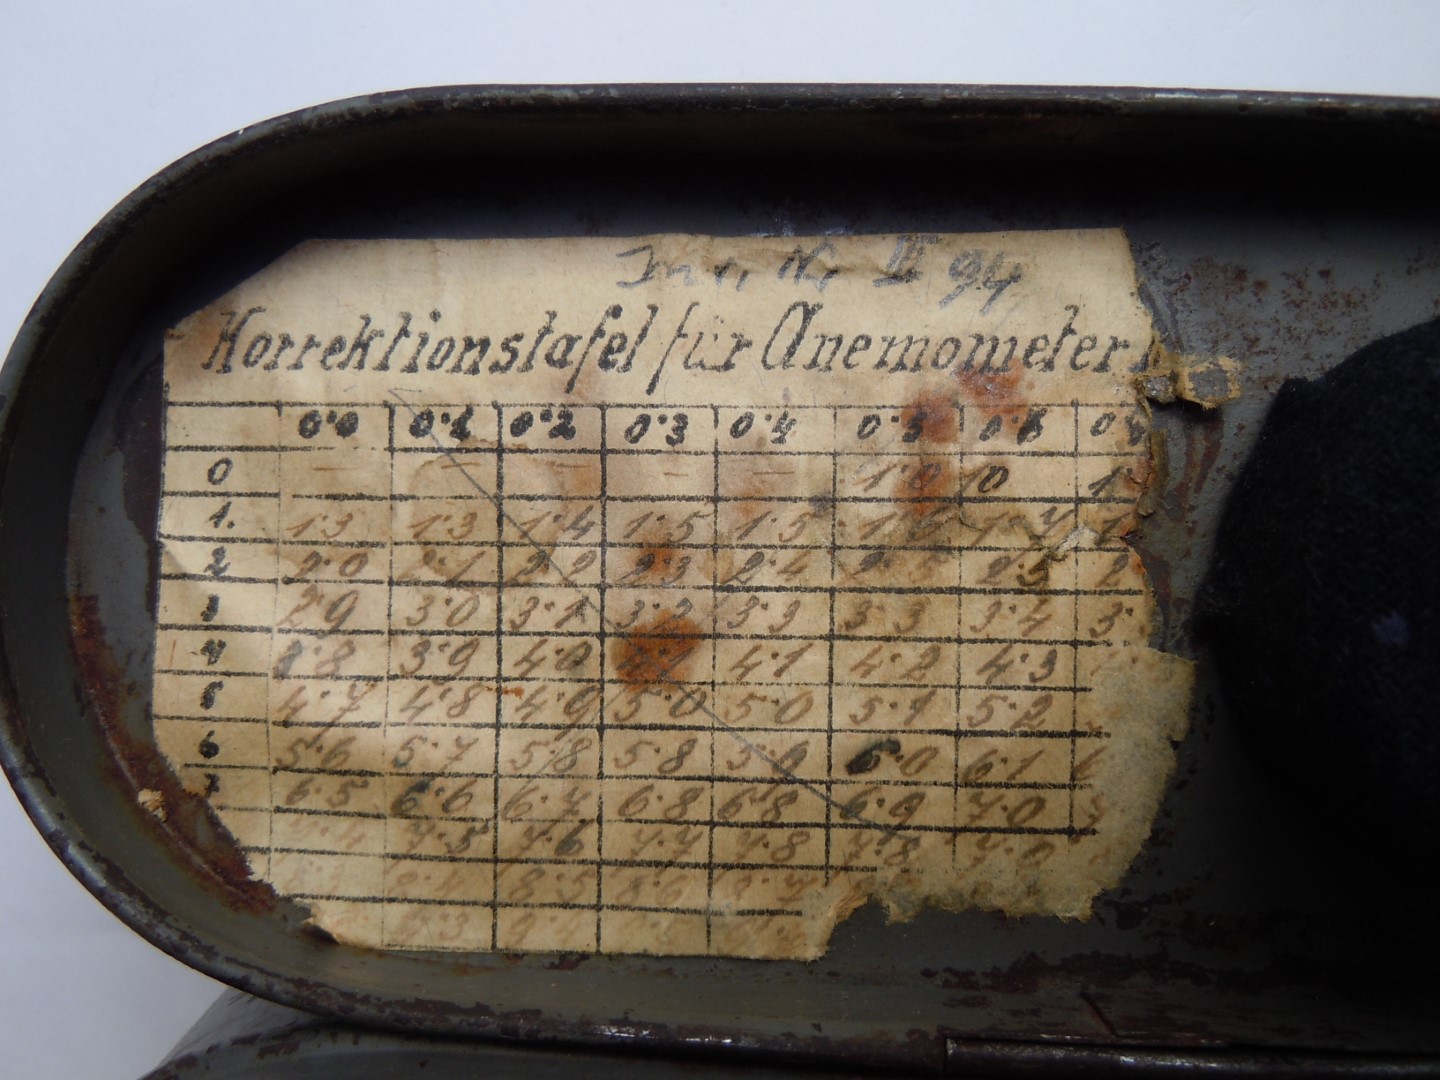 Inv. Nr II 94
Korrektionstafel für Anemometer
0·0 0·1 0·2 0·3 0·4 0·5 0·6
0 — — — — — 1·0 10
1. 1·3 1·3 1·4 1·5 1·5 1·6 1·7
2 2·0 2·1 2·2 2·3 2·4 2·5 2·5
3 2·9 3·0 3·1 3·2 3·3 3·3 3·4
4 3·8 3·9 4·0 4·1 4·1 4·2 4·3
5 4·7 4·8 4·9 5·0 5·0 5·1 5·2
6 5·6 5·7 5·8 5·8 5·9 6·0 6·1
7 6·5 6·6 6·7 6·8 6·8 6·9 7·0
7·4 7·5 7·6 7·7 7·8 7·8
8·4 8·5 8·6 8·7
9·3